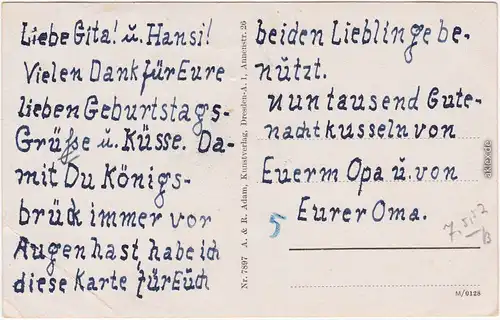 Liebe Gita! u. Hansi!
Vielen Dank für Eure
lieben Geburtstags-
Grüße u. Küsse. Da-
mit Du Königs-
brück immer vor
Augen hast, habe ich
diese Karte für Euch
Nr. 7897 A. & R. Adam, Kunstverlag, Dresden-A. 1, Annenstr. 26
beiden Lieblinge be-
nützt.
nun tausend Gute-
nachtkusseln von
Euerm Opa u. von
Eurer Oma.
5
M/0128